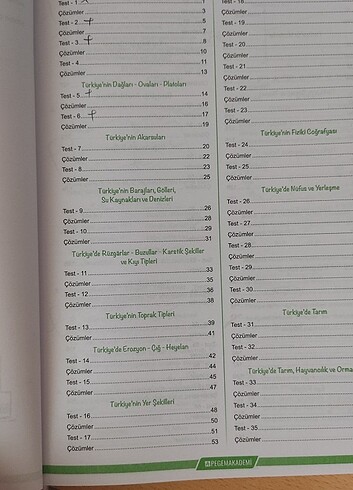 Test - 1 1
Çözümler 3
Test - 2 5
Çözümler 7
Test - 3 8
Çözümler 10
Test - 4 11
Çözümler 13
Türkiye'nin Dağları - Ovaları - Platoları
Test - 5 14
Çözümler 16
Test - 6 17
Çözümler 19
Türkiye'nin Akarsuları
Test - 7 20
Çözümler 22
Test - 8 23
Çözümler 25
Türkiye'nin Barajları, Gölleri,
Su Kaynakları ve Denizleri
Test - 9 26
Çözümler 28
Test - 10 29
Çözümler 31
Türkiye'de Rüzgarlar - Buzullar - Karstik Şekiller
ve Kıyı Tipleri
Test - 11 33
Çözümler 35
Test - 12 36
Çözümler 38
Türkiye'nin Toprak Tipleri
Test - 13 39
Çözümler 41
Türkiye'de Erozyon - Çığ - Heyelan
Test - 14 42
Çözümler 44
Test - 15 45
Çözümler 47
Türkiye'nin Yer Şekilleri
Test - 16 48
Çözümler 50
Test - 17 51
Çözümler 53
Test - 18
Çözümler
Test - 19
Çözümler
Test - 20
Çözümler
Test - 21
Çözümler
Test - 22
Çözümler
Test - 23
Çözümler
Türkiye'nin Fiziki Coğrafyası
Test - 24
Çözümler
Test - 25
Çözümler
Türkiye'de Nüfus ve Yerleşme
Test - 26
Çözümler
Test - 27
Çözümler
Test - 28
Çözümler
Test - 29
Çözümler
Test - 30
Çözümler
Türkiye'de Tarım
Test - 31
Çözümler
Test - 32
Çözümler
Türkiye'de Tarım, Hayvancılık ve
Test - 33
Çözümler
Test - 34
Çözümler
Test - 35
Çözümler
PEGEMAKADEMİ